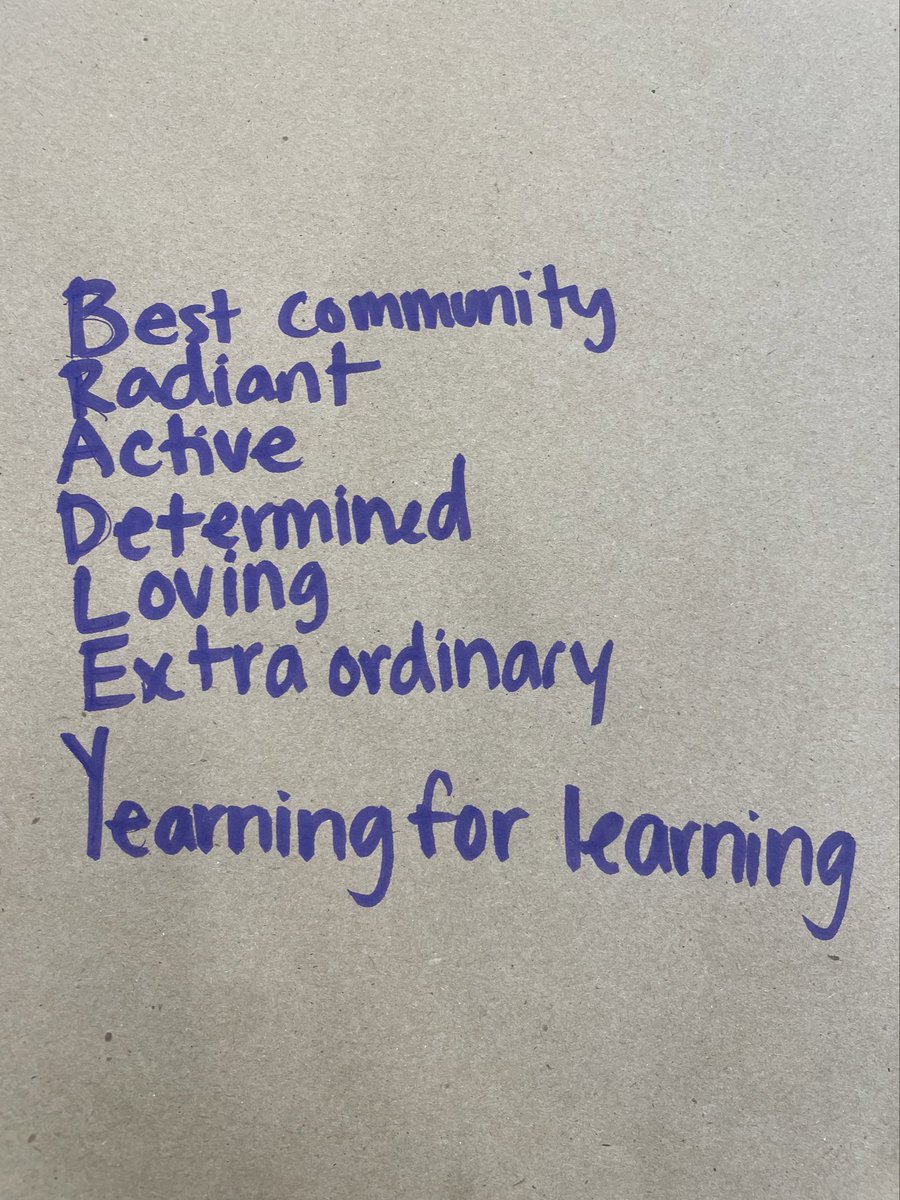 Best community
Radiant
Active
Determined
Loving
Extra ordinary
Yearning for learning